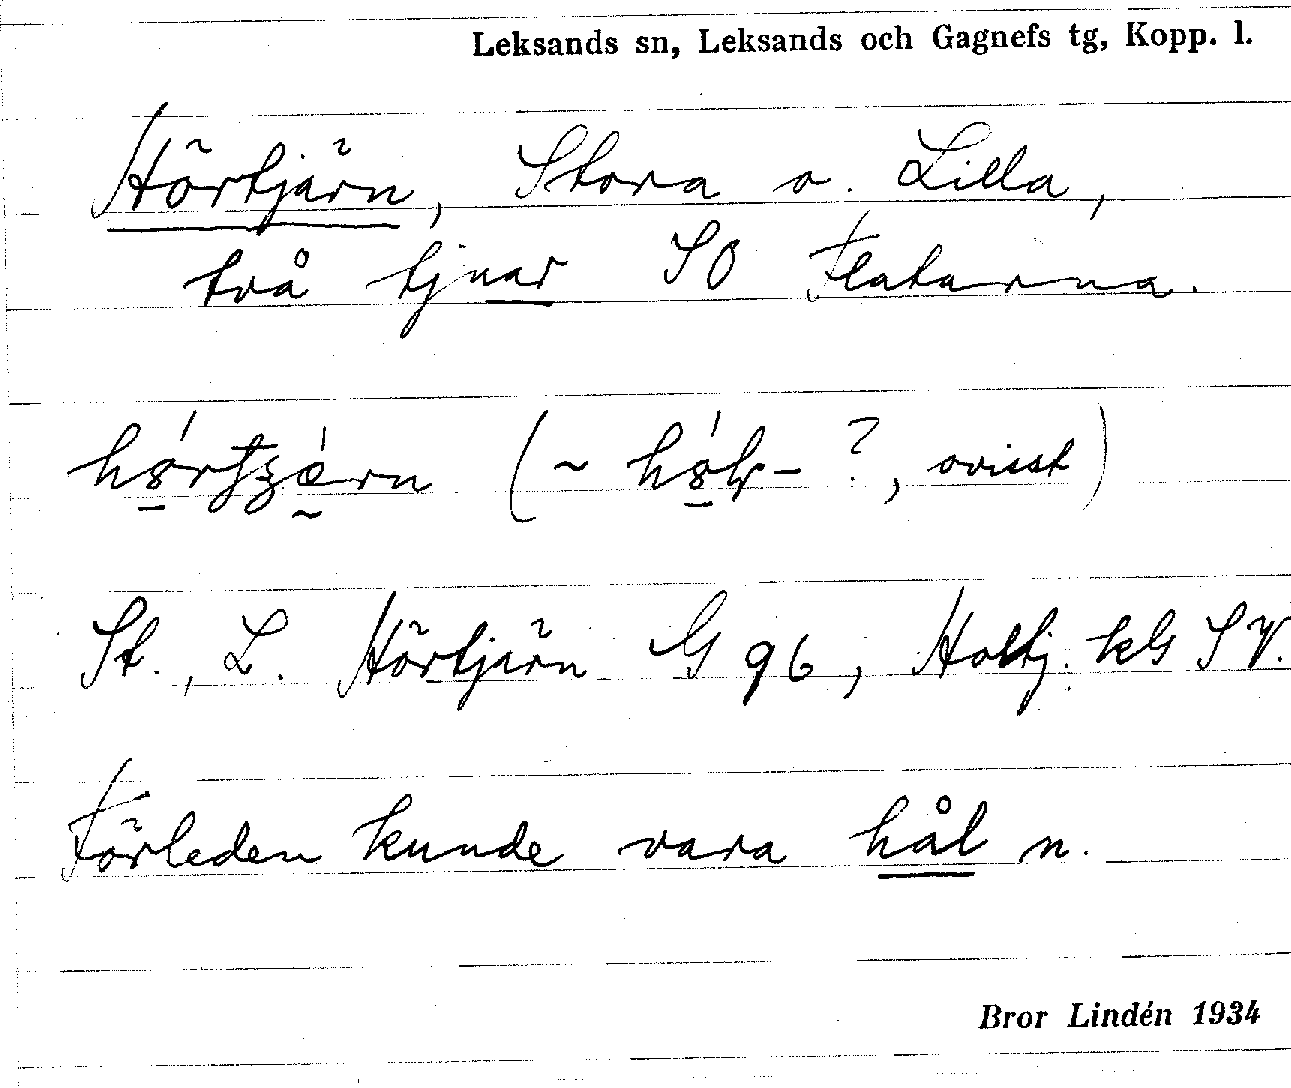 Leksands sn, Leksands och Gagnefs tg, Kopp. l.
Hörtjärn, Stora o. Lilla,
två tjnar SO Flatarna.
(~ , ovisst)
St., L. Hörtjärn G 96, Holtj. kG SV.
Förleden kunde vara hål n.
Bror Lindén 1934